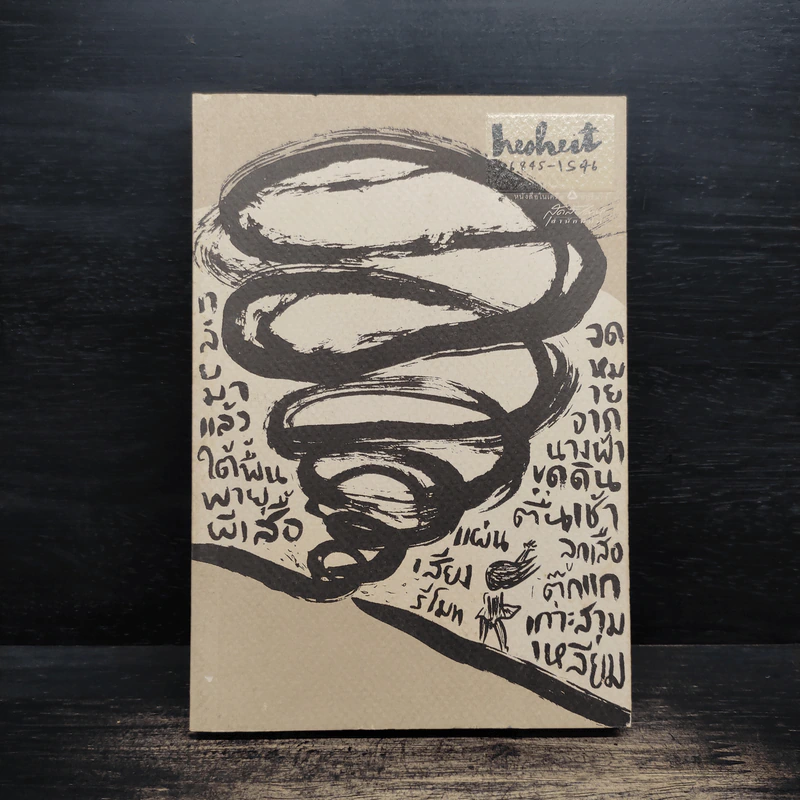 heoheit
6845-1546
หนังสือในเครือ
จด
หม
าย
จาก
นางฟ้า
ขุดดิน
ตื่นเช้า
ลูกเสือ
ตุ๊กแก
เกาะสาม
เหลี่ยม
แผ่น
เสียง
รีโมท
แล้ว
ใต้พื้น
พายุ
ผีเสื้อ